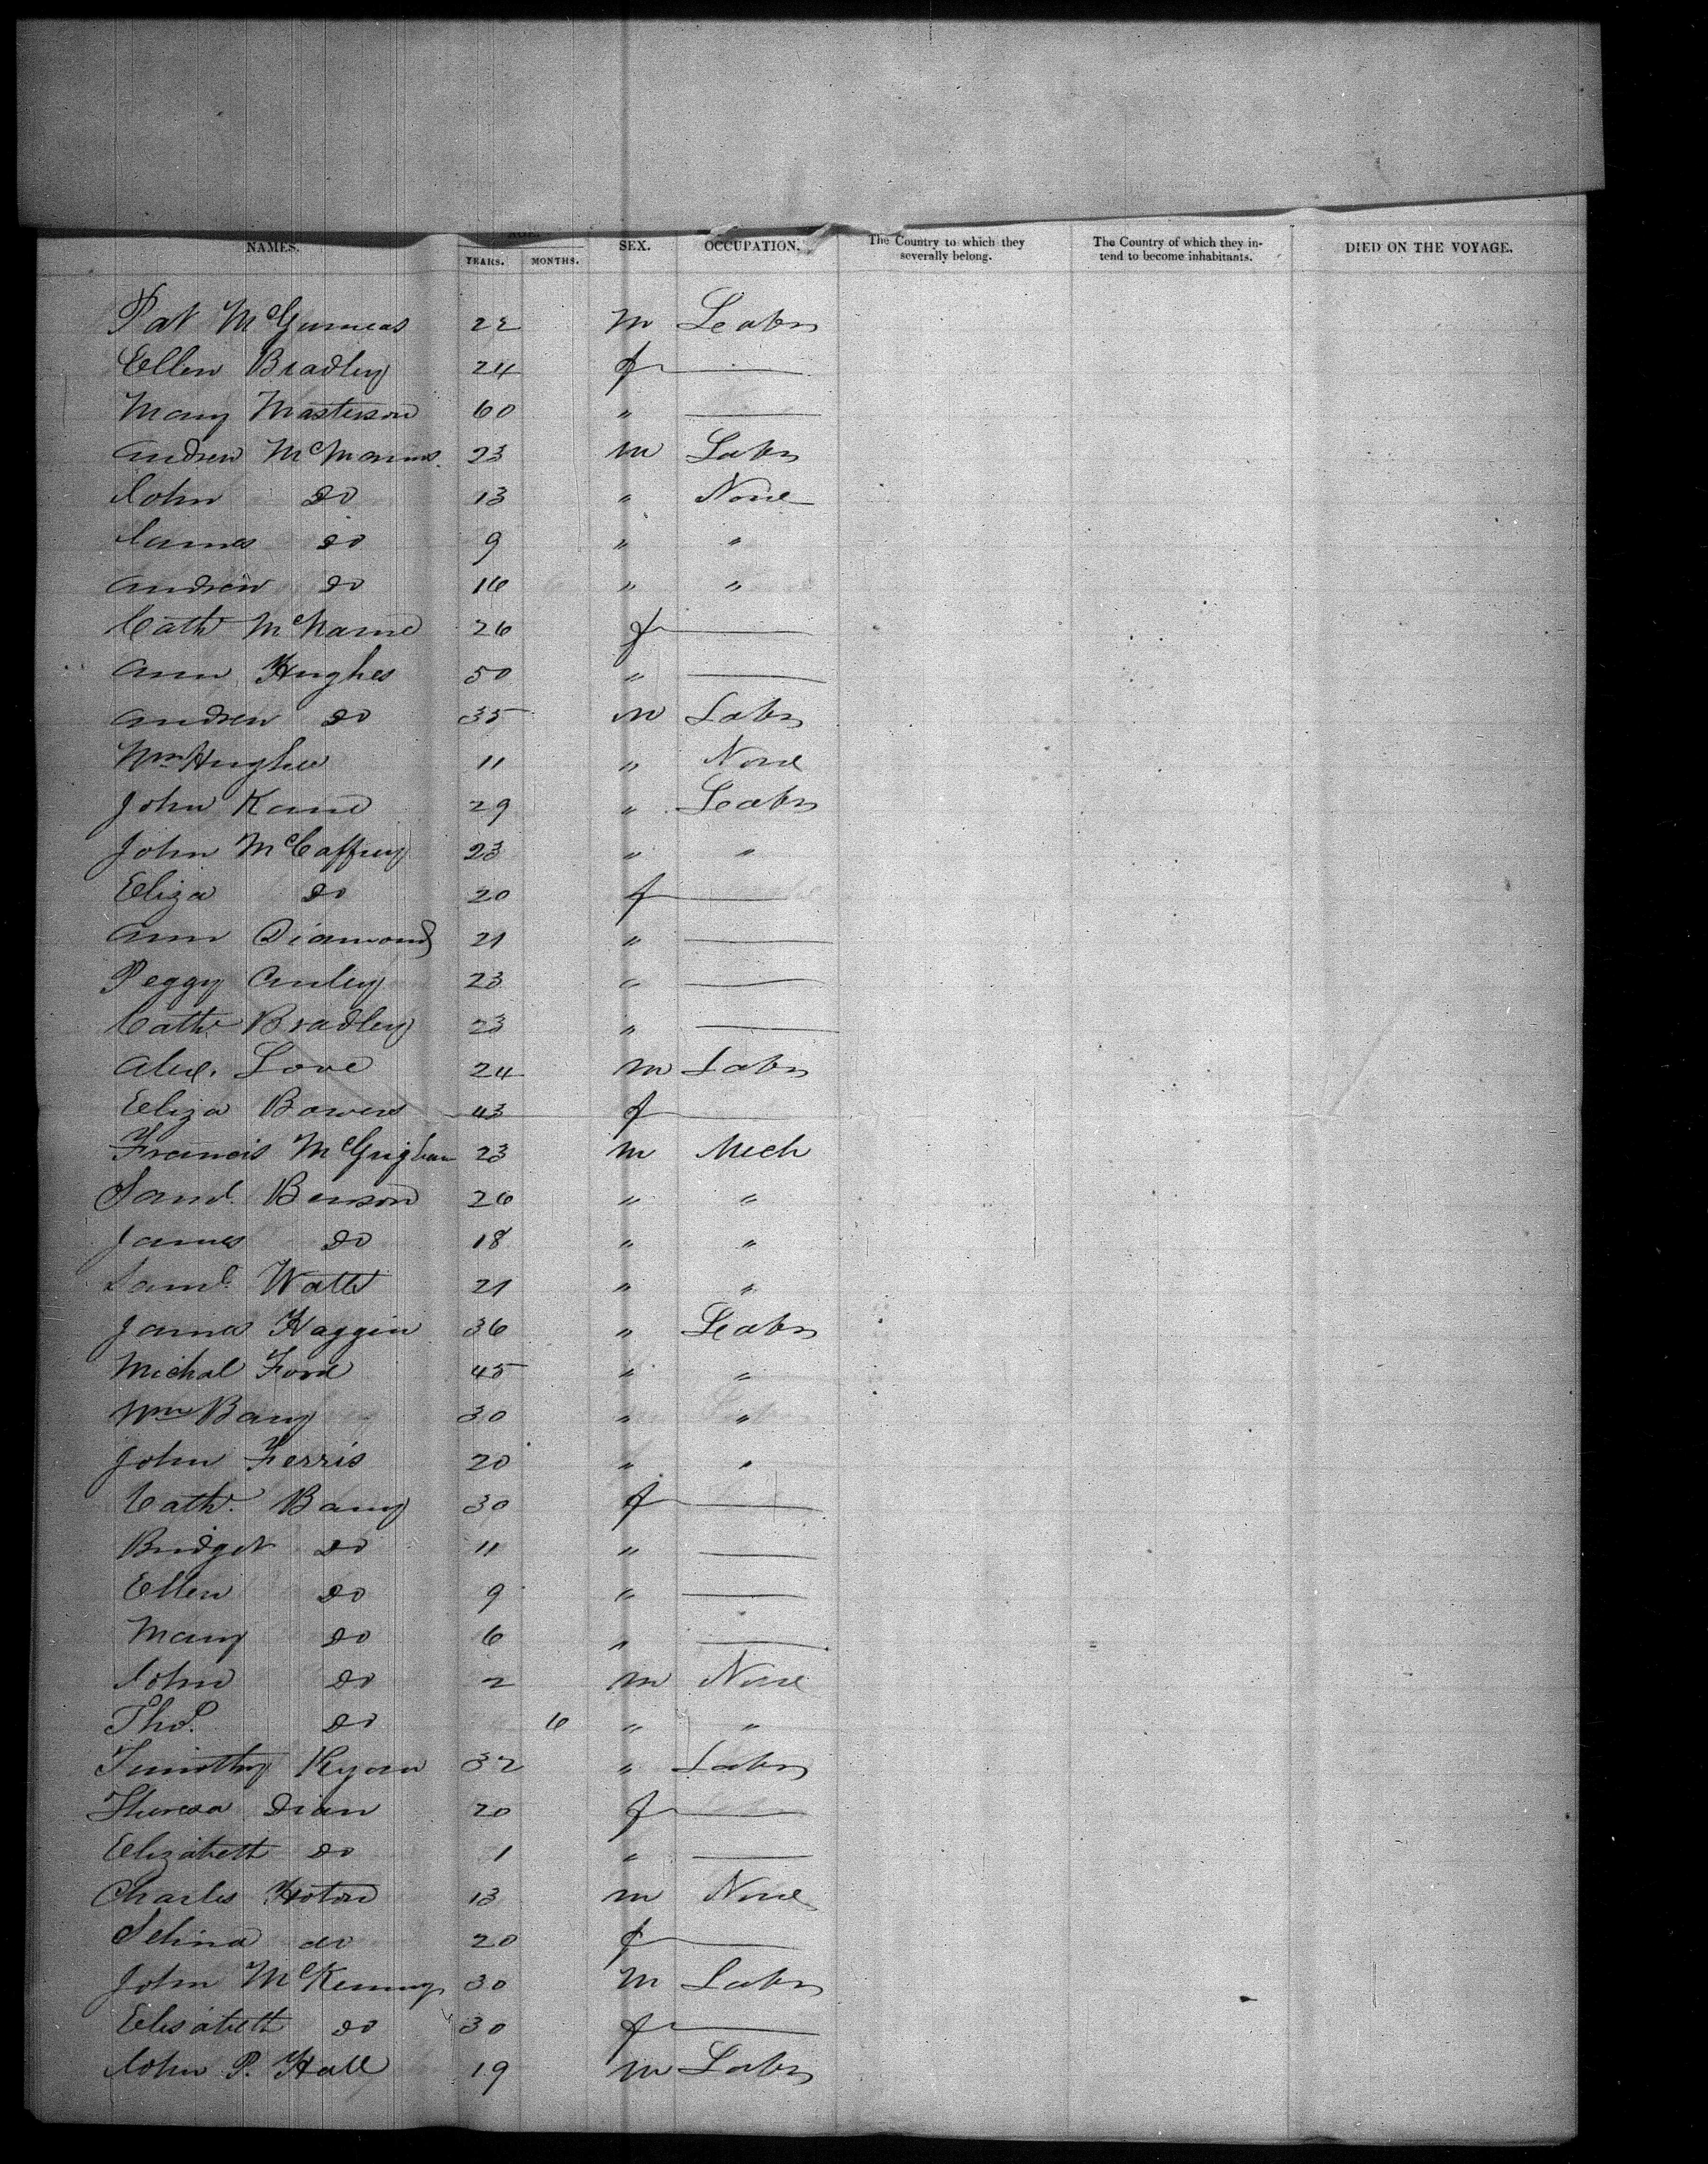 NAMES. AGE. SEX. OCCUPATION. The Country to which they severally belong. The Country of which they intend to become inhabitants. DIED ON THE VOYAGE.
YEARS. MONTHS.
Pat 22 m Labr
Ellen Bradley 24 f —
Mary Masterson 60 " —
Andrew McManus 23 m Labr
John Do 13 " None
James Do 9 " "
Andrew Do 16 " "
Cath 26 f —
Ann Hughes 50 " —
Andrew Do 35 m Labr
Wm Hughes 11 " None
John Kane 29 " Labr
John McCaffrey 23 " "
Eliza Do 20 f —
Ann Diamond 21 " —
Peggy 23 " —
Cath Bradley 23 " —
Alex. Love 24 m Labr
Eliza Bowers 43 f —
Francis 23 m Mech
Saml. Benson 26 " "
James Do 18 " "
Saml. Watts 21 " "
James Haggin 36 " Labr
Michal Ford 45 " "
Wm Barry 30 " "
John Ferris 20 " "
Cath. Barry 30 f —
Bridget Do 11 " —
Ellen Do 9 " —
Mary Do 6 " —
John Do 2 m None
Thos. Do 6 " "
Timothy Ryan 32 " Labr
Theresa Dian 20 f —
Elizabeth Do 1 " —
Charles Hoton 13 m None
Selina do 20 f —
John McKenny 30 m Labr
Elisabeth Do 30 f —
John P. Hall 19 m Labr